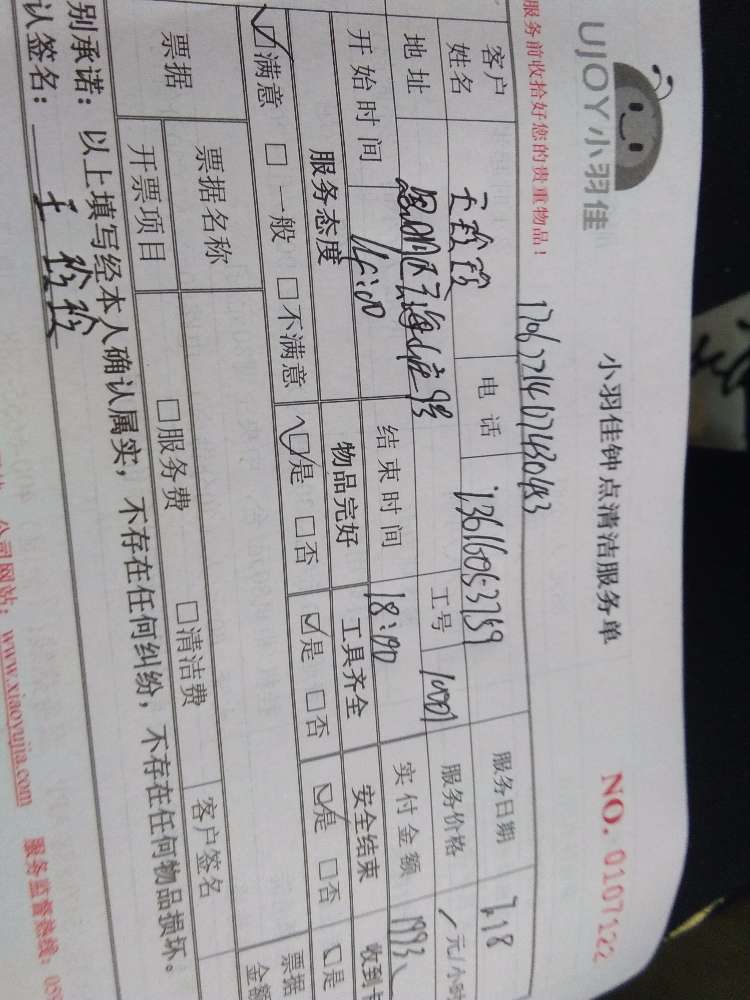 UJOY小羽佳
小羽佳钟点清洁服务单
NO. 0107122
服务前收拾好您的贵重物品！
客户姓名 王玲玲 电话 13616053759 服务日期 7.18
地址 工号 10001 服务价格 元/小时
开始时间 14:00 结束时间 18:00 实付金额 1993
服务态度 物品完好 工具齐全 安全结束 收到卡
☑满意 □一般 □不满意 ☑是 □否 ☑是 □否 ☑是 □否 □是
票据 票据名称 客户签名 票据金额
开票项目 □服务费 □清洁费
别承诺：以上填写经本人确认属实，不存在任何纠纷，不存在任何物品损坏。
认签名：王玲玲
公司网站：www.xiaoyujia.com 服务监督热线：059